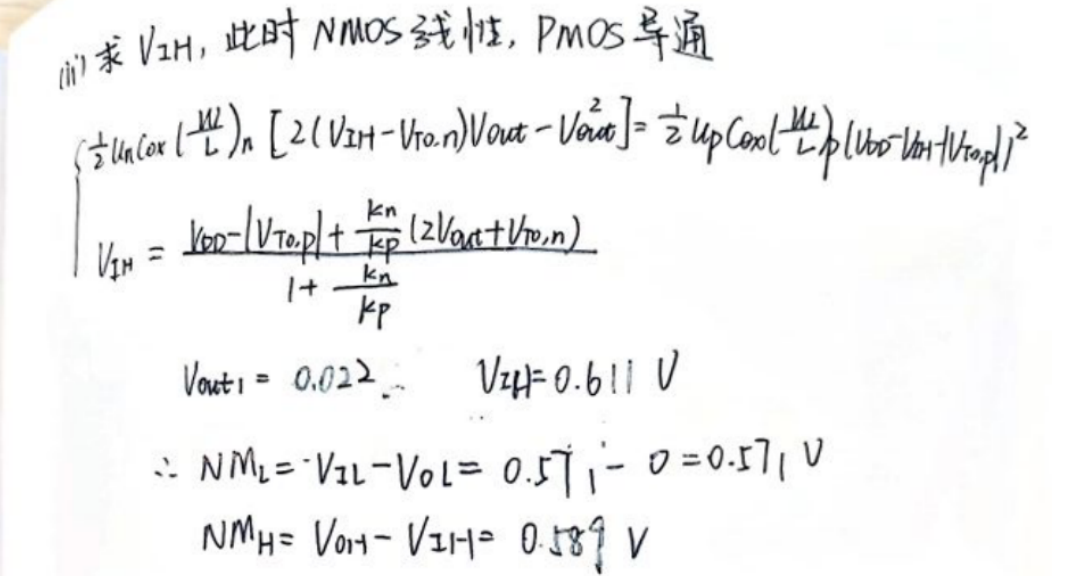 (ii) 求 VIH, 此时 NMOS 线性, PMOS 导通
½ UnCox (W/L)n [2(VIH-VT0.n)Vout-Vout²] = ½ UpCox(W/L)p(VDD-VIH-|VT0,p|)²
VIH = (VDD-|VT0,p|+ kn/kp (2Vout+VT0,n)) / (1+ kn/kp)
Vout1 = 0.022 VIH=0.611 V
∴ NML = VIL-VOL = 0.571 - 0 = 0.571 V
NMH = VOH- VIH = 0.589 V